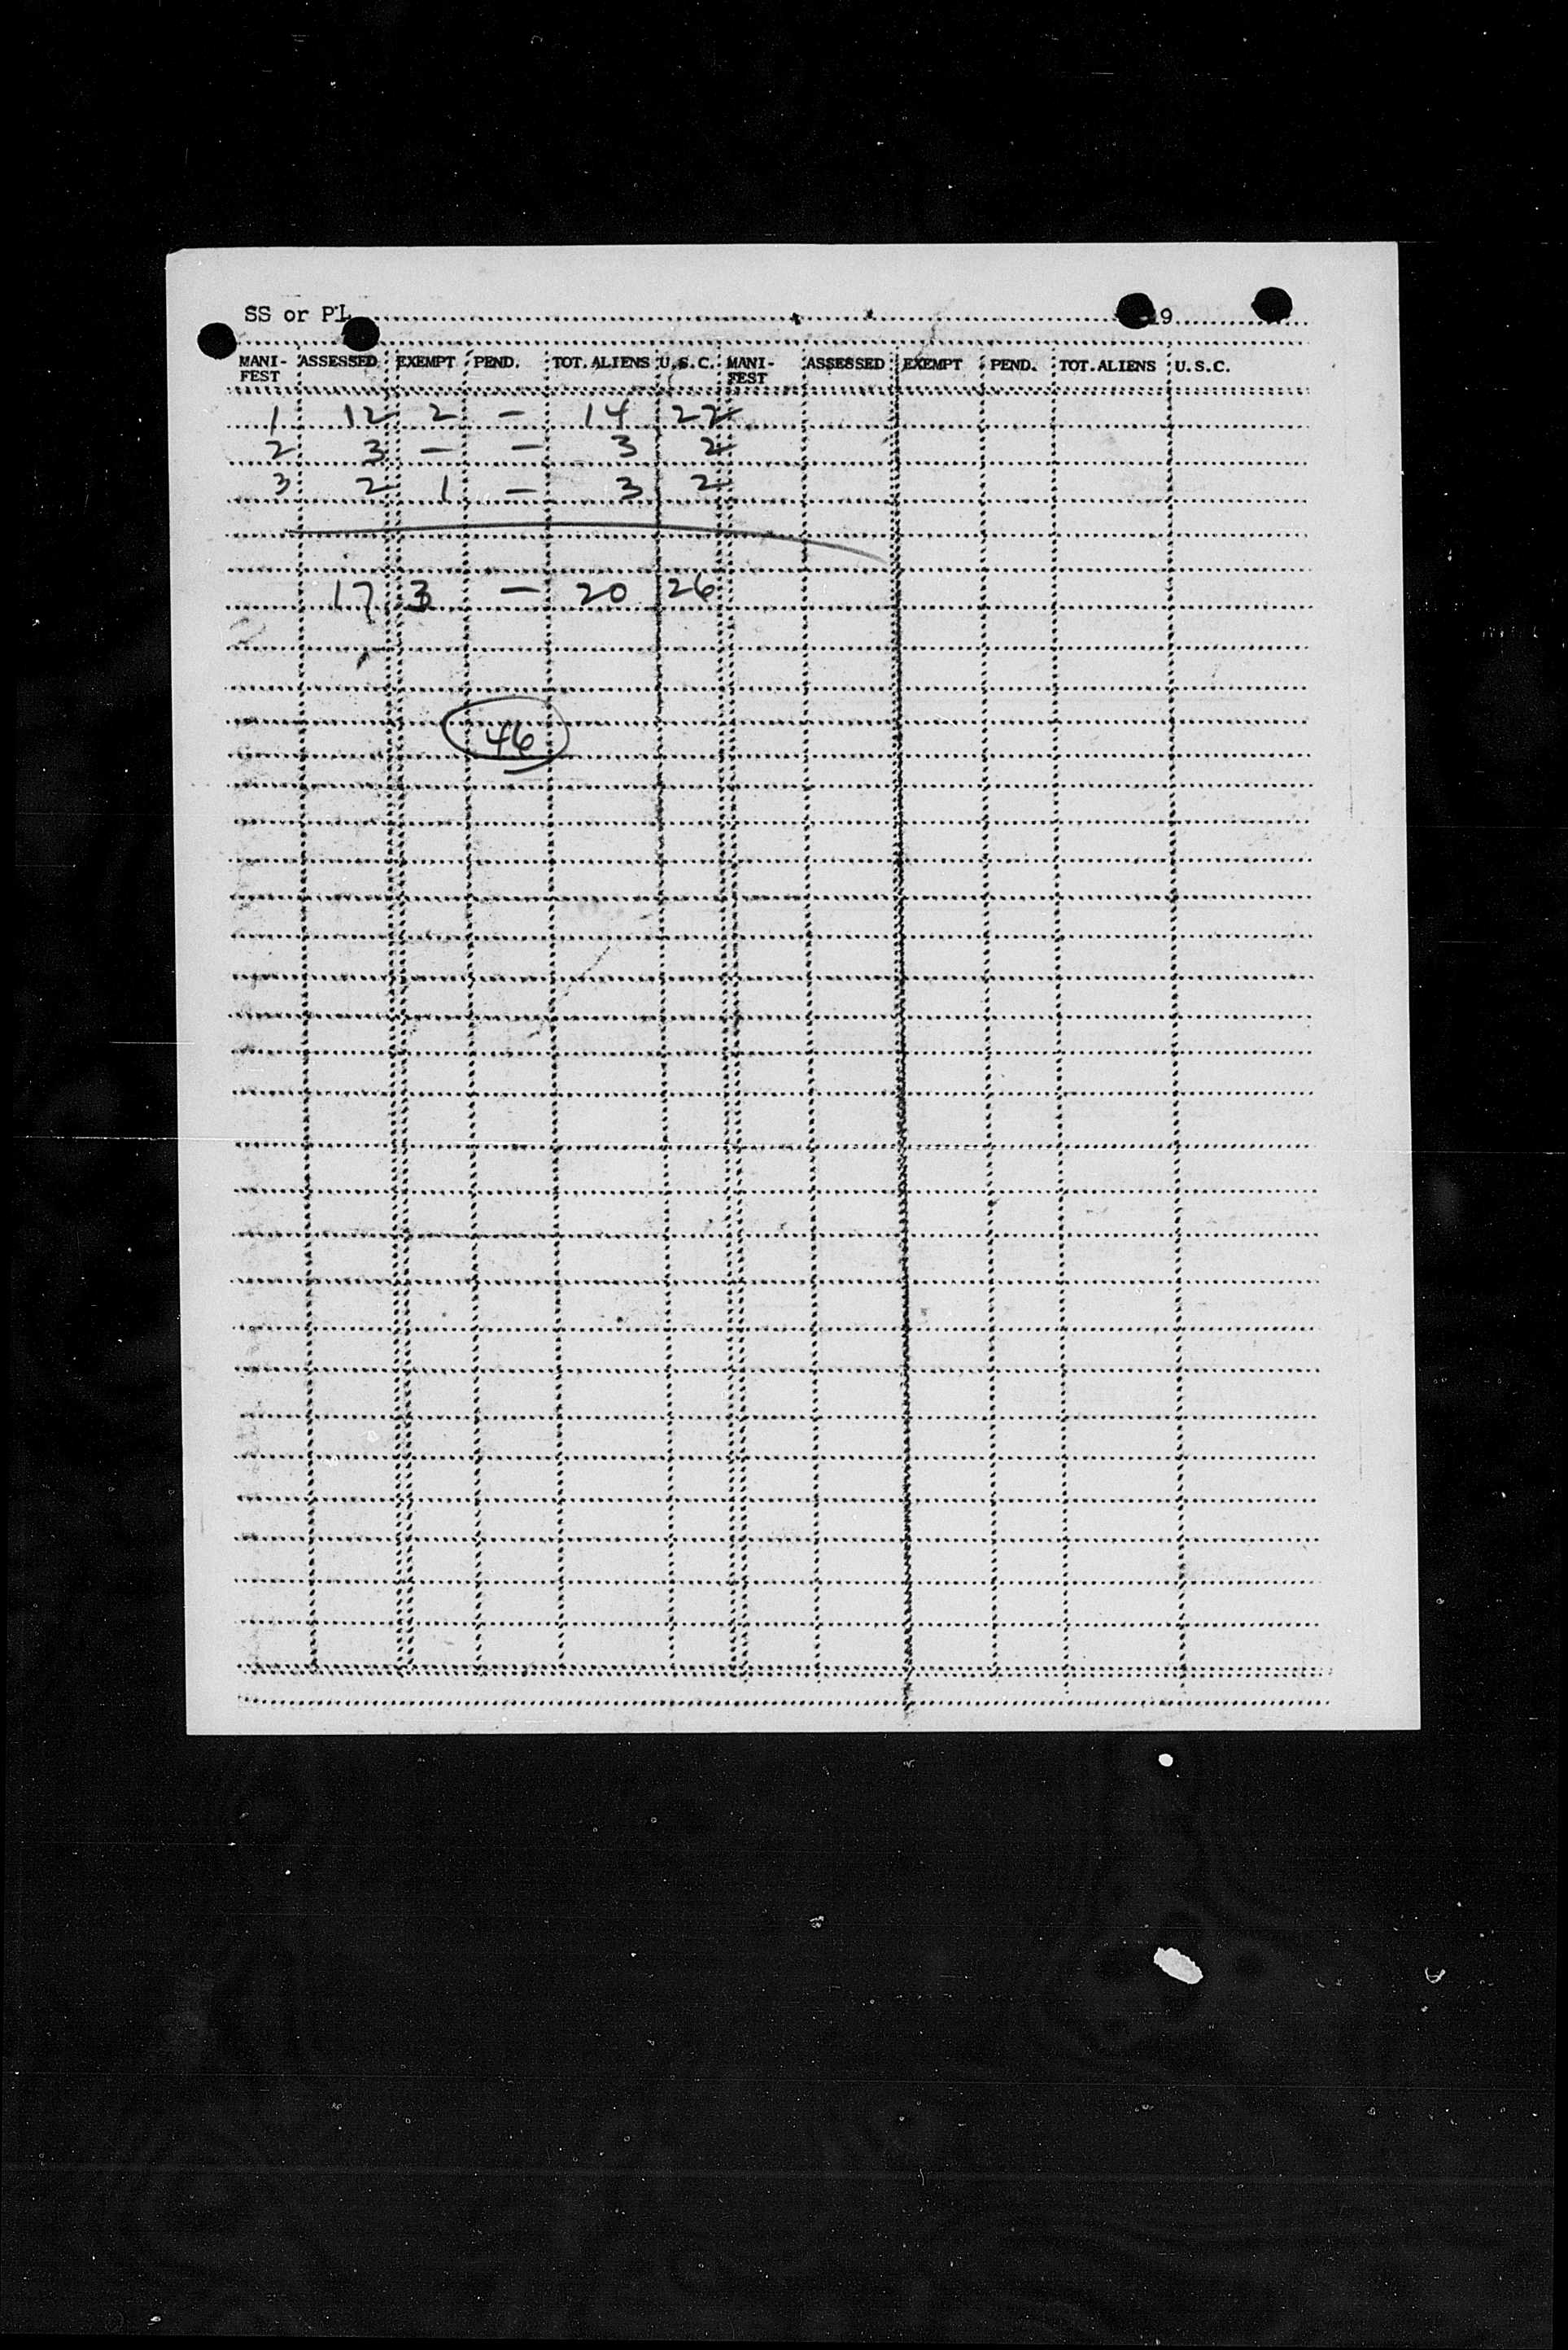 SS or PL 19
MANI-FEST ASSESSED EXEMPT PEND. TOT. ALIENS U.S.C. MANI-FEST ASSESSED EXEMPT PEND. TOT. ALIENS U.S.C.
1 12 2 - 14 22
2 3 - - 3 2
3 2 1 - 3 2
17 3 - 20 26
46